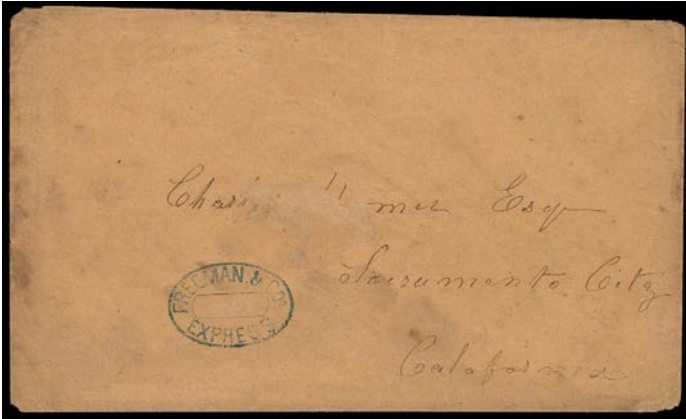 Esqr
Sacramento City
Calafornia
FREEMAN & CO'S
EXPRESS